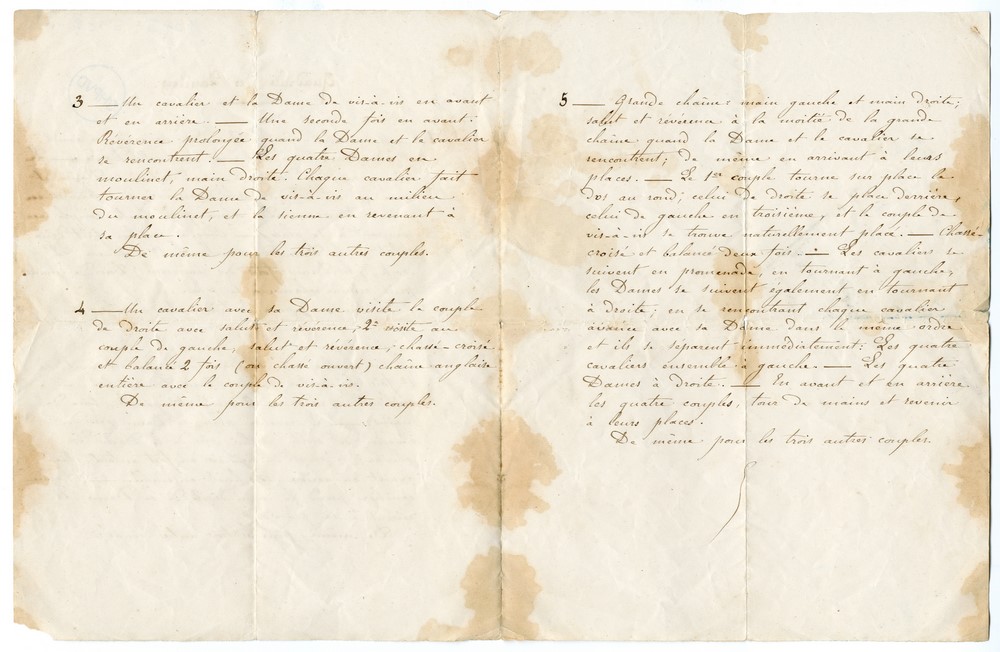 3 — Un cavalier et la Dame de vis-à-vis en avant
et en arrière. — Une seconde fois en avant:
Révérence prolongée quand la Dame et le cavalier
se rencontrent. — Les quatre Dames en
moulinet, main droite. Chaque cavalier fait
tourner la Dame de vis-à-vis au milieu
du moulinet, et la sienne en revenant à
sa place.
De même pour les trois autres couples.
4 — Un cavalier avec sa Dame visite le couple
de droite avec salut et révérence, 2e visite au
couple de gauche, salut et révérence; chassé-croisé
et balancé 2 fois (ou chassé ouvert) chaîne anglaise
entière avec le couple de vis-à-vis.
De même pour les trois autres couples.
5 — Grande chaîne: main gauche et main droite;
salut et révérence à la moitié de la grande
chaîne quand la Dame et le cavalier se
rencontrent; de même en arrivant à leurs
places. — Le 1er couple tourne sur place le
dos au rond; celui de droite se place derrière,
celui de gauche en troisième, et le couple de
vis-à-vis se trouve naturellement placé. — Chassé-
croisé et balancé deux fois. — Les cavaliers se
suivent en promenade, en tournant à gauche,
les Dames se suivent également en tournant
à droite; en se rencontrant chaque cavalier
avance avec sa Dame dans le même ordre
et ils se séparent immédiatement: Les quatre
cavaliers ensemble à gauche. — Les quatre
Dames à droite. — En avant et en arrière
les quatre couples, tour de mains et revenir
à leurs places.
De même pour les trois autres couples.